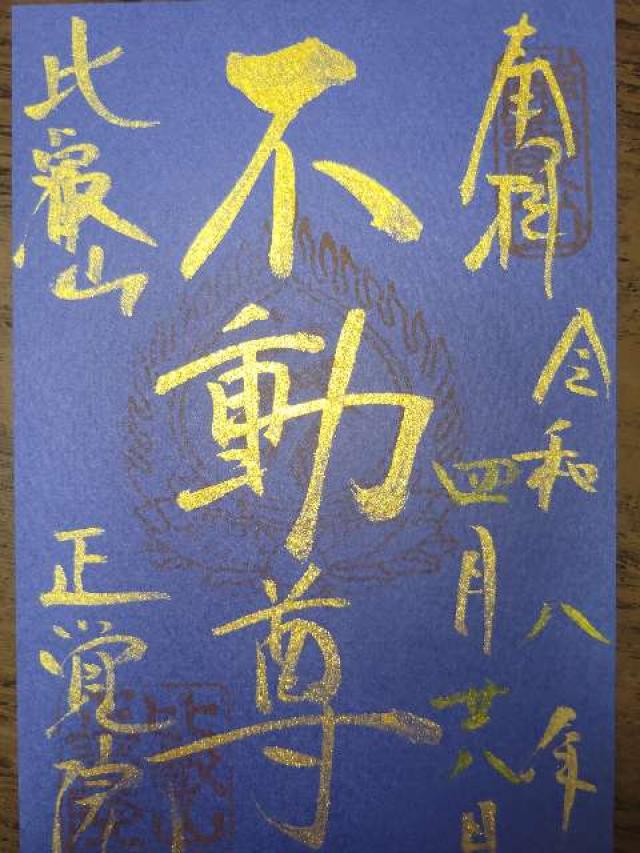 奉拝
令和八年
四月廿八日
不動尊
比叡山
正覚院